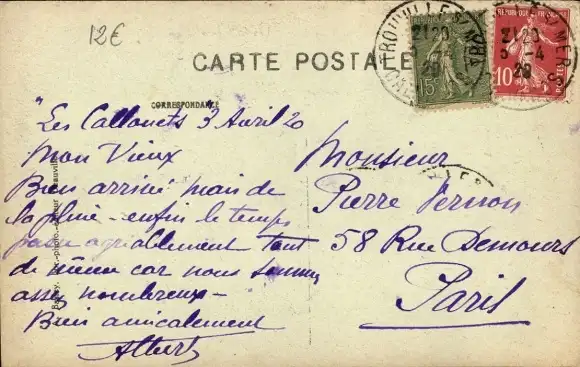 12€
CARTE POSTALE
TROUVILLE S/ MER
21 20
5 -4
20
15c
21 20
5 -4
20
10
CORRESPONDANCE
"Les Callouets 3 Avril 20
Mon Vieux
Bien arrivé mais de
la pluie - enfin le temps
passe agréablement tout
de même car nous sommes
assez nombreux -
Bien amicalement
Albert
Monsieur
Pierre Vernon
58 Rue Demours
Paris